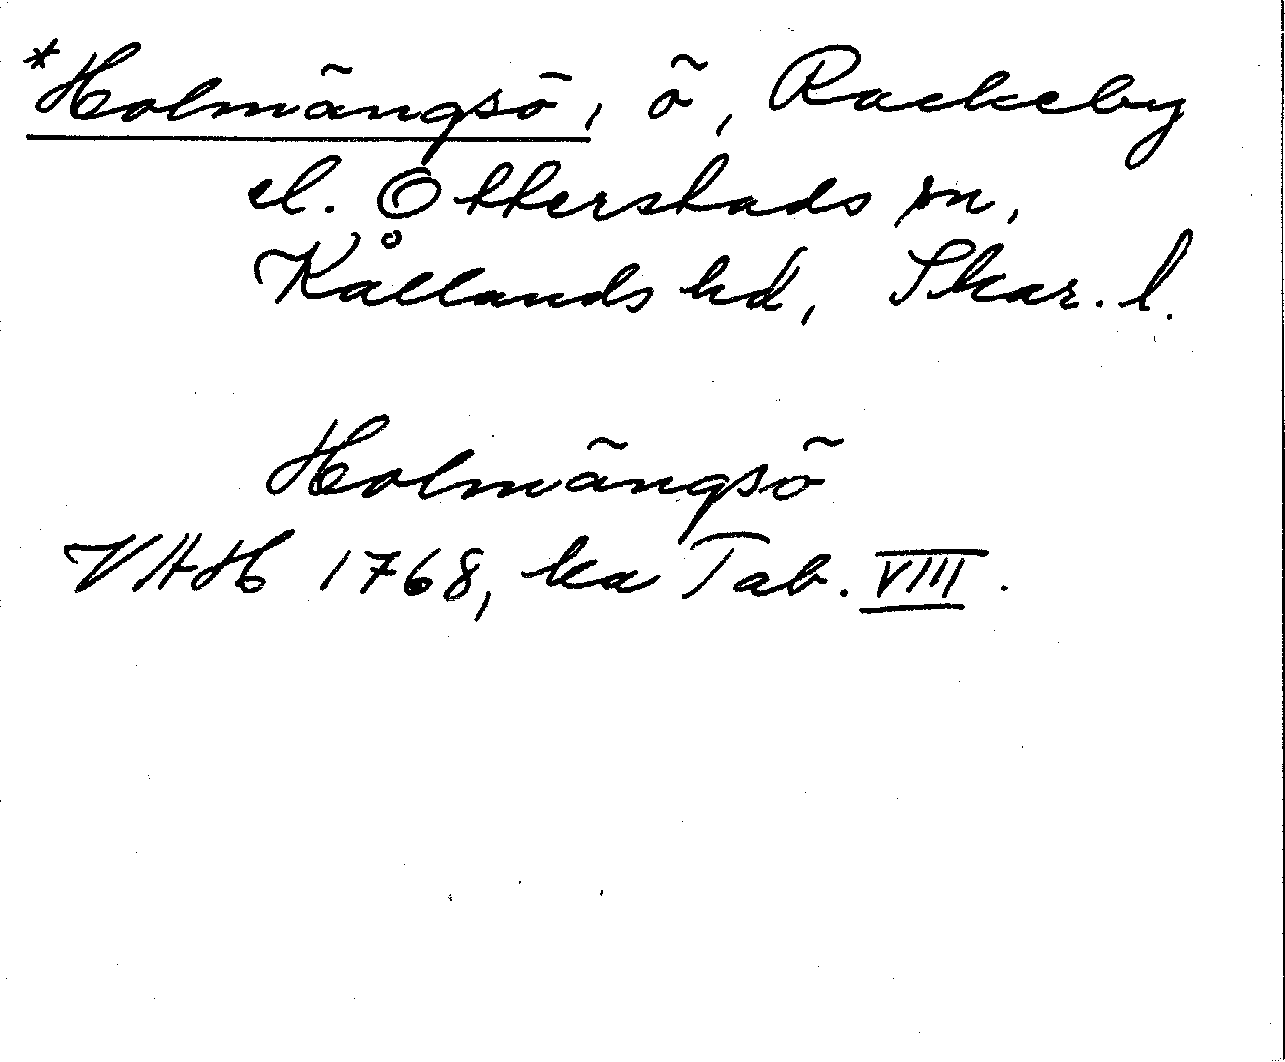 *Holmängsö, ö, Rackeby
el. Otterstads sn,
Kållands hd, Skar. l.
Holmängsö
VAH 1768, ka Tab. VIII.